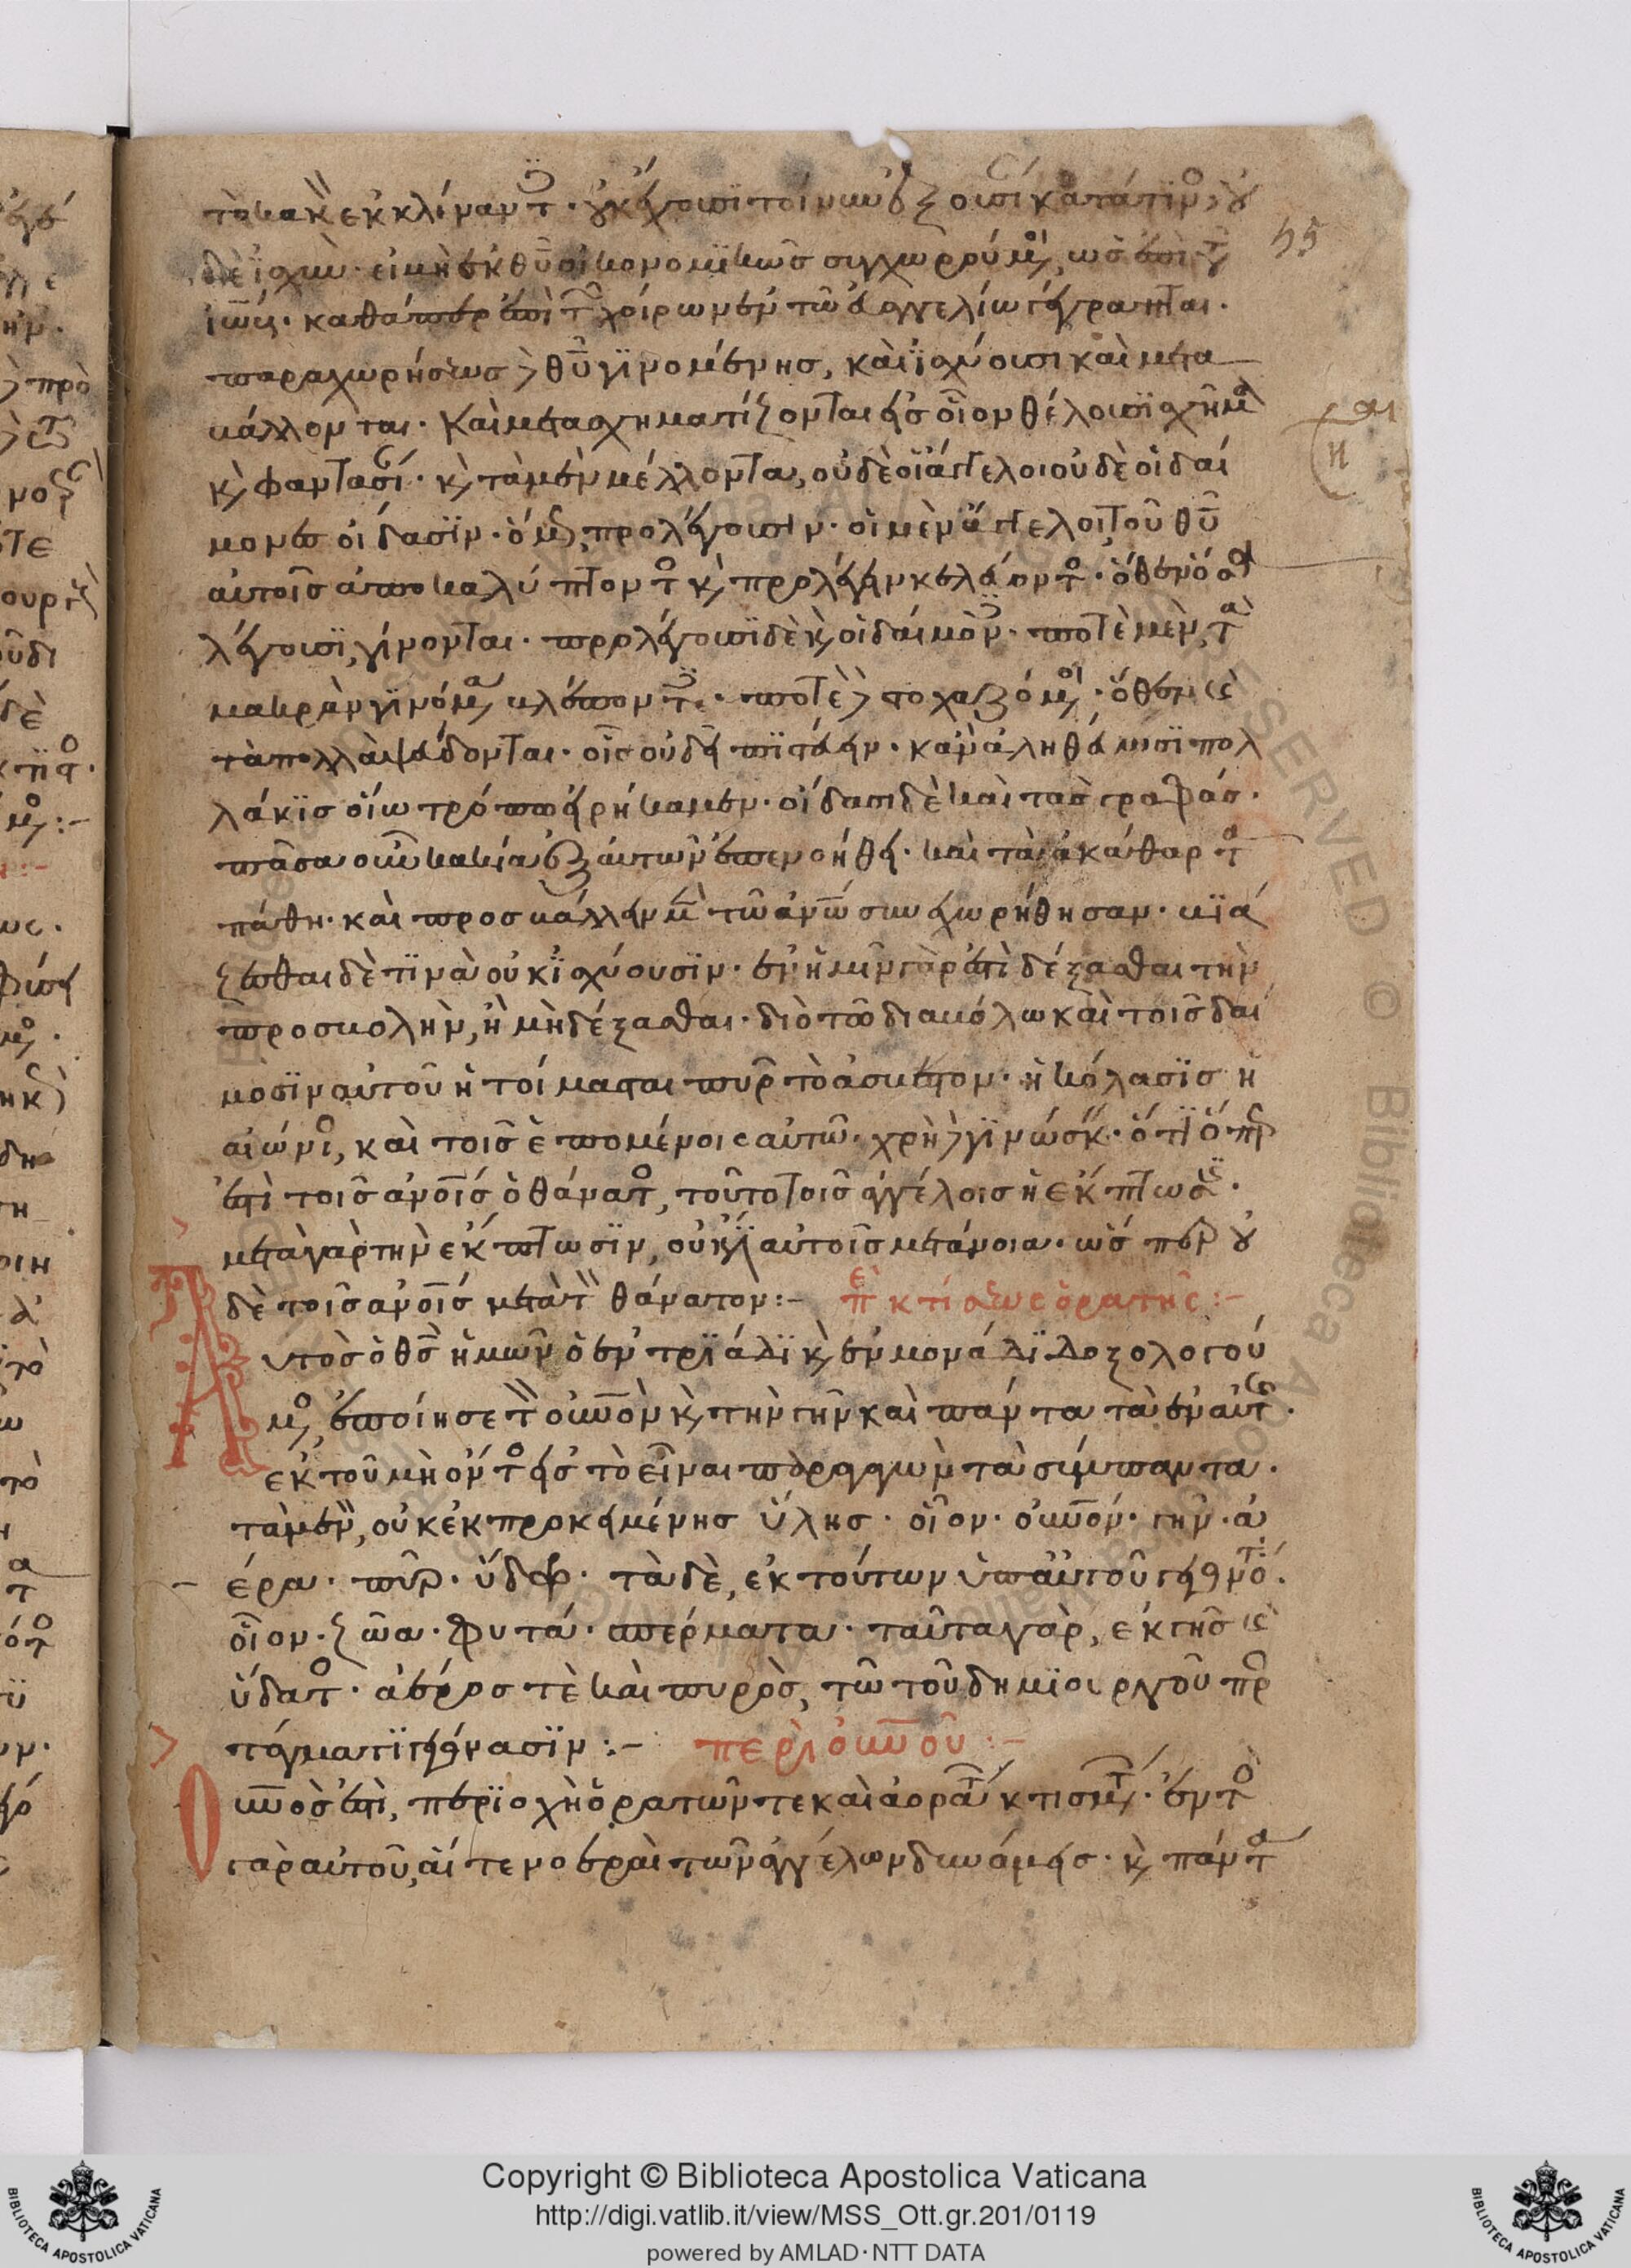 το κακὸν ἐκκλίναντες· οὐκ ἔχουσι τοίνυν ἐξουσίαν κατά τινος, οὐ
δὲ ἰσχύν· εἰ μὴ ἐκ θῡ οἰκονομικῶς συγχωρούμενοι, ὡς ἐπὶ τοῦ
ἰώβ· καθάπερ ἐπὶ τῶν χοίρων ἐν τῶ εὐαγγελίω γέγραπται·
παραχωρήσεως δὲ θῡ γινομένης, καὶ ἰσχύουσι καὶ μετα
βάλλονται· καὶ μετασχηματίζονται εἰς οἷον θέλουσι σχῆμα
κατὰ φαντασίαν· καὶ τὰ μὲν μέλλοντα, οὐδὲ οἱ ἄγγελοι οὐδὲ οἱ δαί
μονες οἴδασιν· ὅμως προλέγουσιν· οἱ μὲν ἄγγελοι, τοῦ θῡ
αὐτοῖς ἀποκαλύπτοντος καὶ προλέγειν κελεύοντος· ὅθεν ὅσα
λέγουσι, γίνονται· προλέγουσι δὲ καὶ οἱ δαίμονες· ποτὲ μὲν, τὰ
μακρὰν γινόμενα βλέποντες· ποτὲ δὲ στοχαζόμενοι· ὅθεν καὶ
τὰ πολλὰ ψεύδονται· οἷς οὐ δεῖ πιστεύειν· κἂν ἀληθεύωσι πολ
λάκις οἵω τρόπω εἰρήκαμεν· οἴδασι δὲ καὶ τὰς γραφάς·
πᾶσα οὖν κακία ἐξ αὐτῶν ἐπενοήθη· καὶ τὰ ἀκάθαρτα
πάθη· καὶ προσβάλλειν μὲν τῶ ἀνω συνεχωρήθησαν· βιά
ζεσθαι δὲ τινὰ οὐκ ἰσχύουσιν· ἐν ἡμῖν γάρ ἐστι δέξασθαι τὴν
προσβολὴν, ἢ μὴ δέξασθαι· διὸ τῶ διαβόλω καὶ τοῖς δαί
μοσιν αὐτοῦ ἡτοίμασται πῦρ τὸ ἄσβεστον· ἡ κόλασις ἡ
αἰώνιος, καὶ τοῖς ἑπομένοις αὐτῶ· χρὴ δὲ γινώσκειν· ὅτι ὅπερ
ἐστὶ τοῖς ἀνοις ὁ θάνατος, τοῦτο τοῖς ἀγγέλοις ἡ ἔκπτωσις·
μετὰ γὰρ τὴν ἔκπτωσιν, οὐκ ἔστιν αὐτοῖς μετάνοια· ὥσπερ οὐ
δὲ τοῖς ἀνοις μετὰ τὸν θάνατον:– περὶ κτίσεως ὁρατῆς:–
Αὐτὸς ὁ θς ἡμῶν ὁ ἐν τριάδι καὶ ἐν μονάδι δοξολογού
μενος, ἐποίησε τὸν οὐνὸν καὶ τὴν γῆν καὶ πάντα τὰ ἐν αὐτοῖς·
ἐκ τοῦ μὴ ὄντος εἰς τὸ εἶναι παραγαγὼν τὰ σύμπαντα·
τὰ μὲν, οὐκ ἐκ προκειμένης ὕλης· οἷον· οὐνόν· γῆν· ἀ
έρα· πῦρ· ὕδωρ· τὰ δὲ, ἐκ τούτων ὑπ' αὐτοῦ γεγονότα·
οἷον· ζῶα· φυτά· σπέρματα· ταῦτα γὰρ, ἐκ γῆς καὶ
ὕδατος· ἀέρος τὲ καὶ πυρὸς, τῶ τοῦ δημιουργοῦ προσ
τάγματι γεγόνασιν:– περὶ οὐνοῦ:–
Οὐνός ἐστι, περιοχὴ ὁρατῶν τε καὶ ἀοράτων κτισμάτων· ἐντὸς
γὰρ αὐτοῦ, αἵ τε νοεραὶ τῶν ἀγγέλων δυνάμεις· καὶ πάντα
αι
η
55
Copyright © Biblioteca Apostolica Vaticana
http://digi.vatlib.it/view/MSS_Ott.gr.201/0119
powered by AMLAD·NTT DATA
BIBLIOTECA APOSTOLICA VATICANA
BIBLIOTECA APOSTOLICA VATICANA